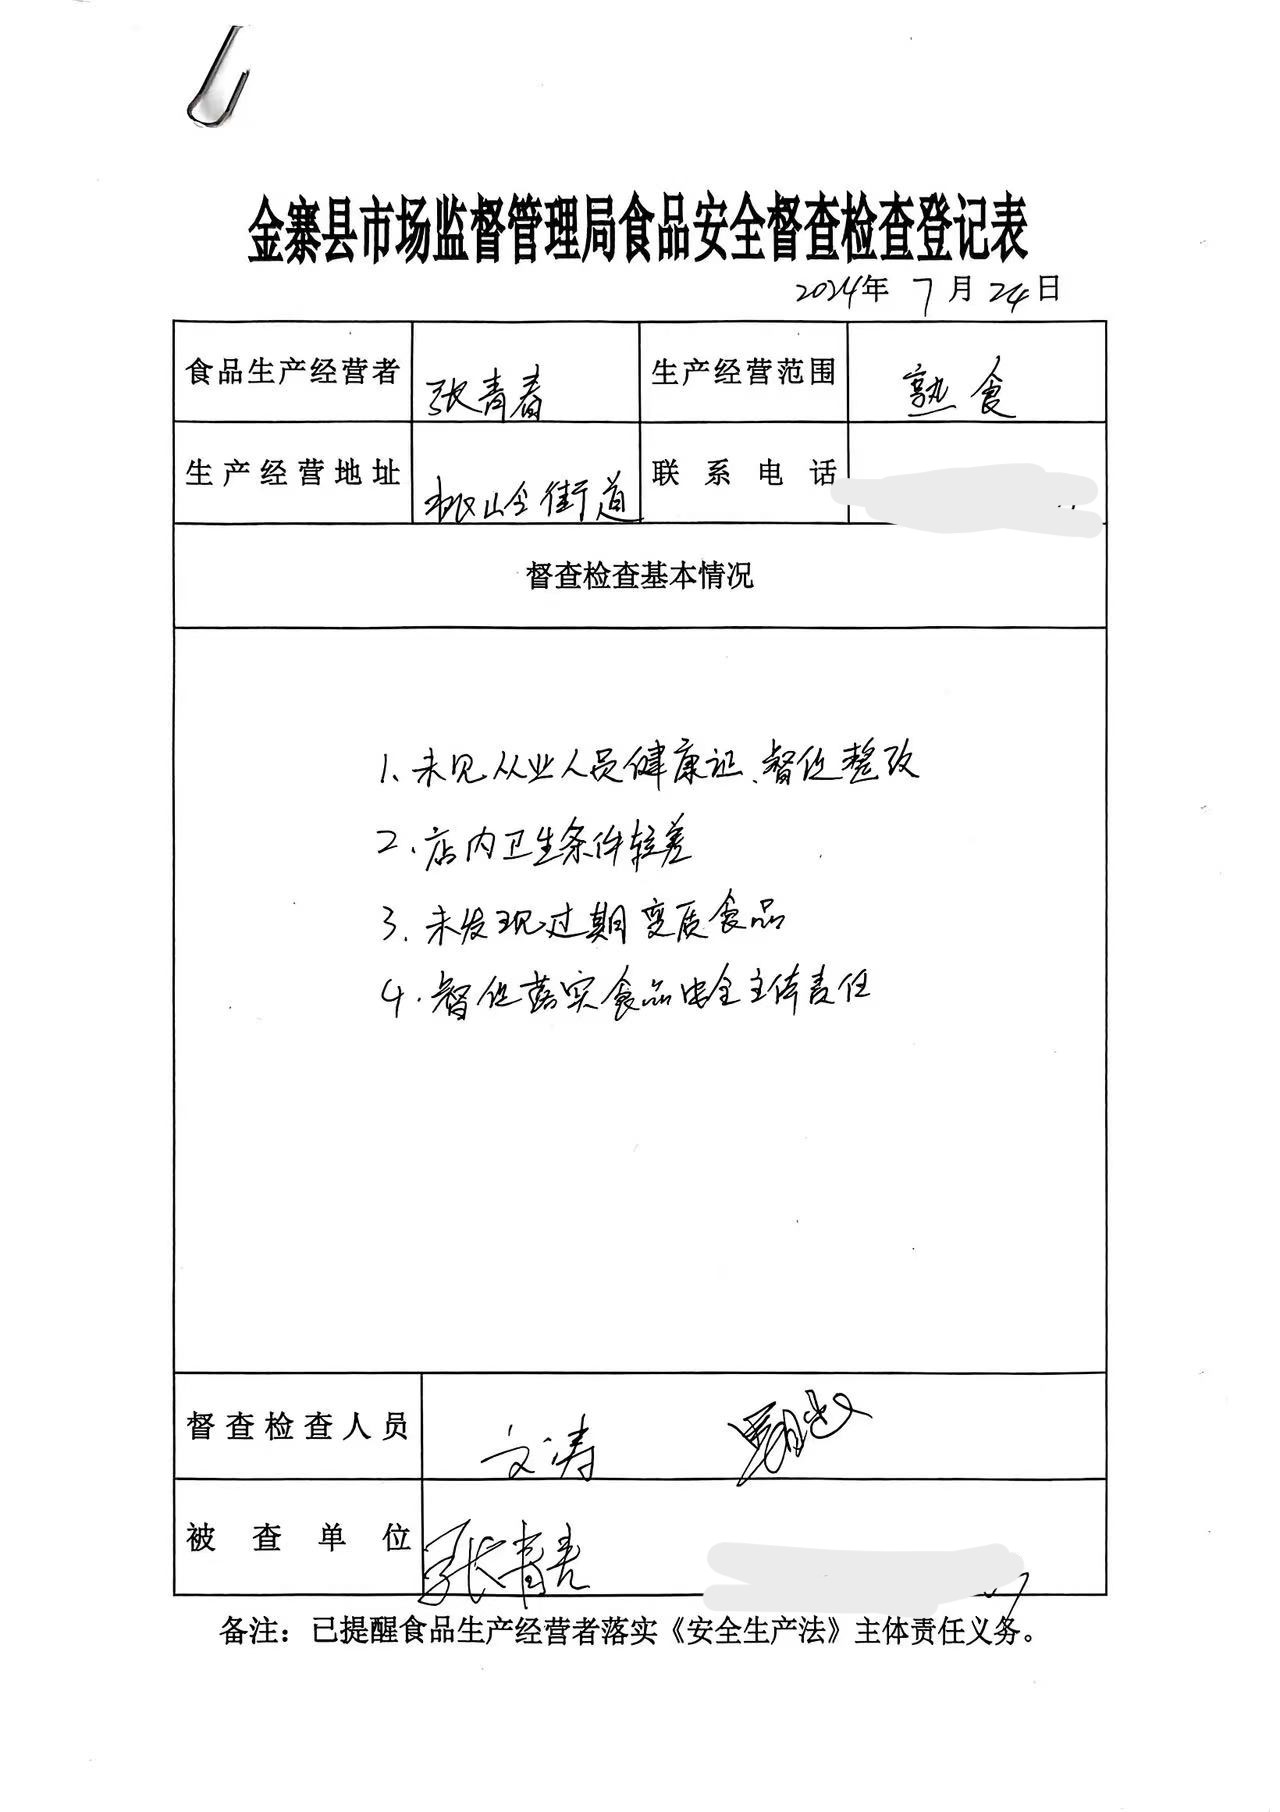 金寨县市场监督管理局食品安全督查检查登记表
2024年 7月24日
食品生产经营者 张青春 生产经营范围 熟食
生产经营地址 桃岭街道 联系电话
督查检查基本情况
1、未见从业人员健康证、督促整改
2、店内卫生条件较差
3、未发现过期变质食品
4、督促落实食品安全主体责任
督查检查人员 文涛
被查单位 张青春
备注：已提醒食品生产经营者落实《安全生产法》主体责任义务。